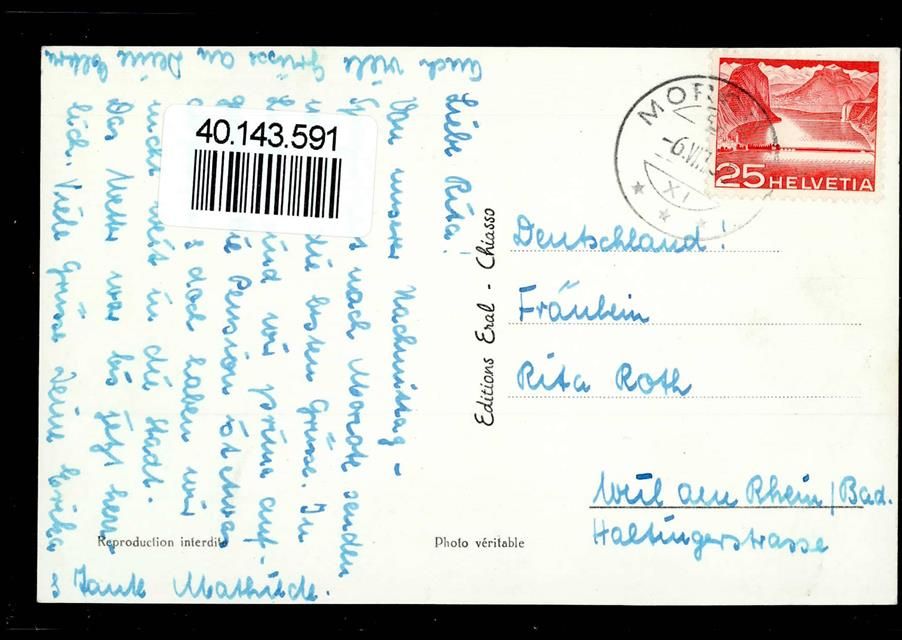 Auch viele Grüsse an Deine Eltern
Liebe Rita!
Von unserem Nachmittag-
nach Morcote senden
die besten Grüsse. In
sind wir prima auf-
Pension ist etwas
doch haben wir
nicht weit in die Stadt.
Das Wetter war bis jetzt herr-
lich. Viele Grüsse Deine Erika
& Tante Mathilde.
40.143.591
Editions Eral - Chiasso
Reproduction interdite
Photo véritable
25 HELVETIA
-6.VII.
XI
Deutschland!
Fräulein
Rita Roth
Weil am Rhein/Bad.
Haltingerstrasse